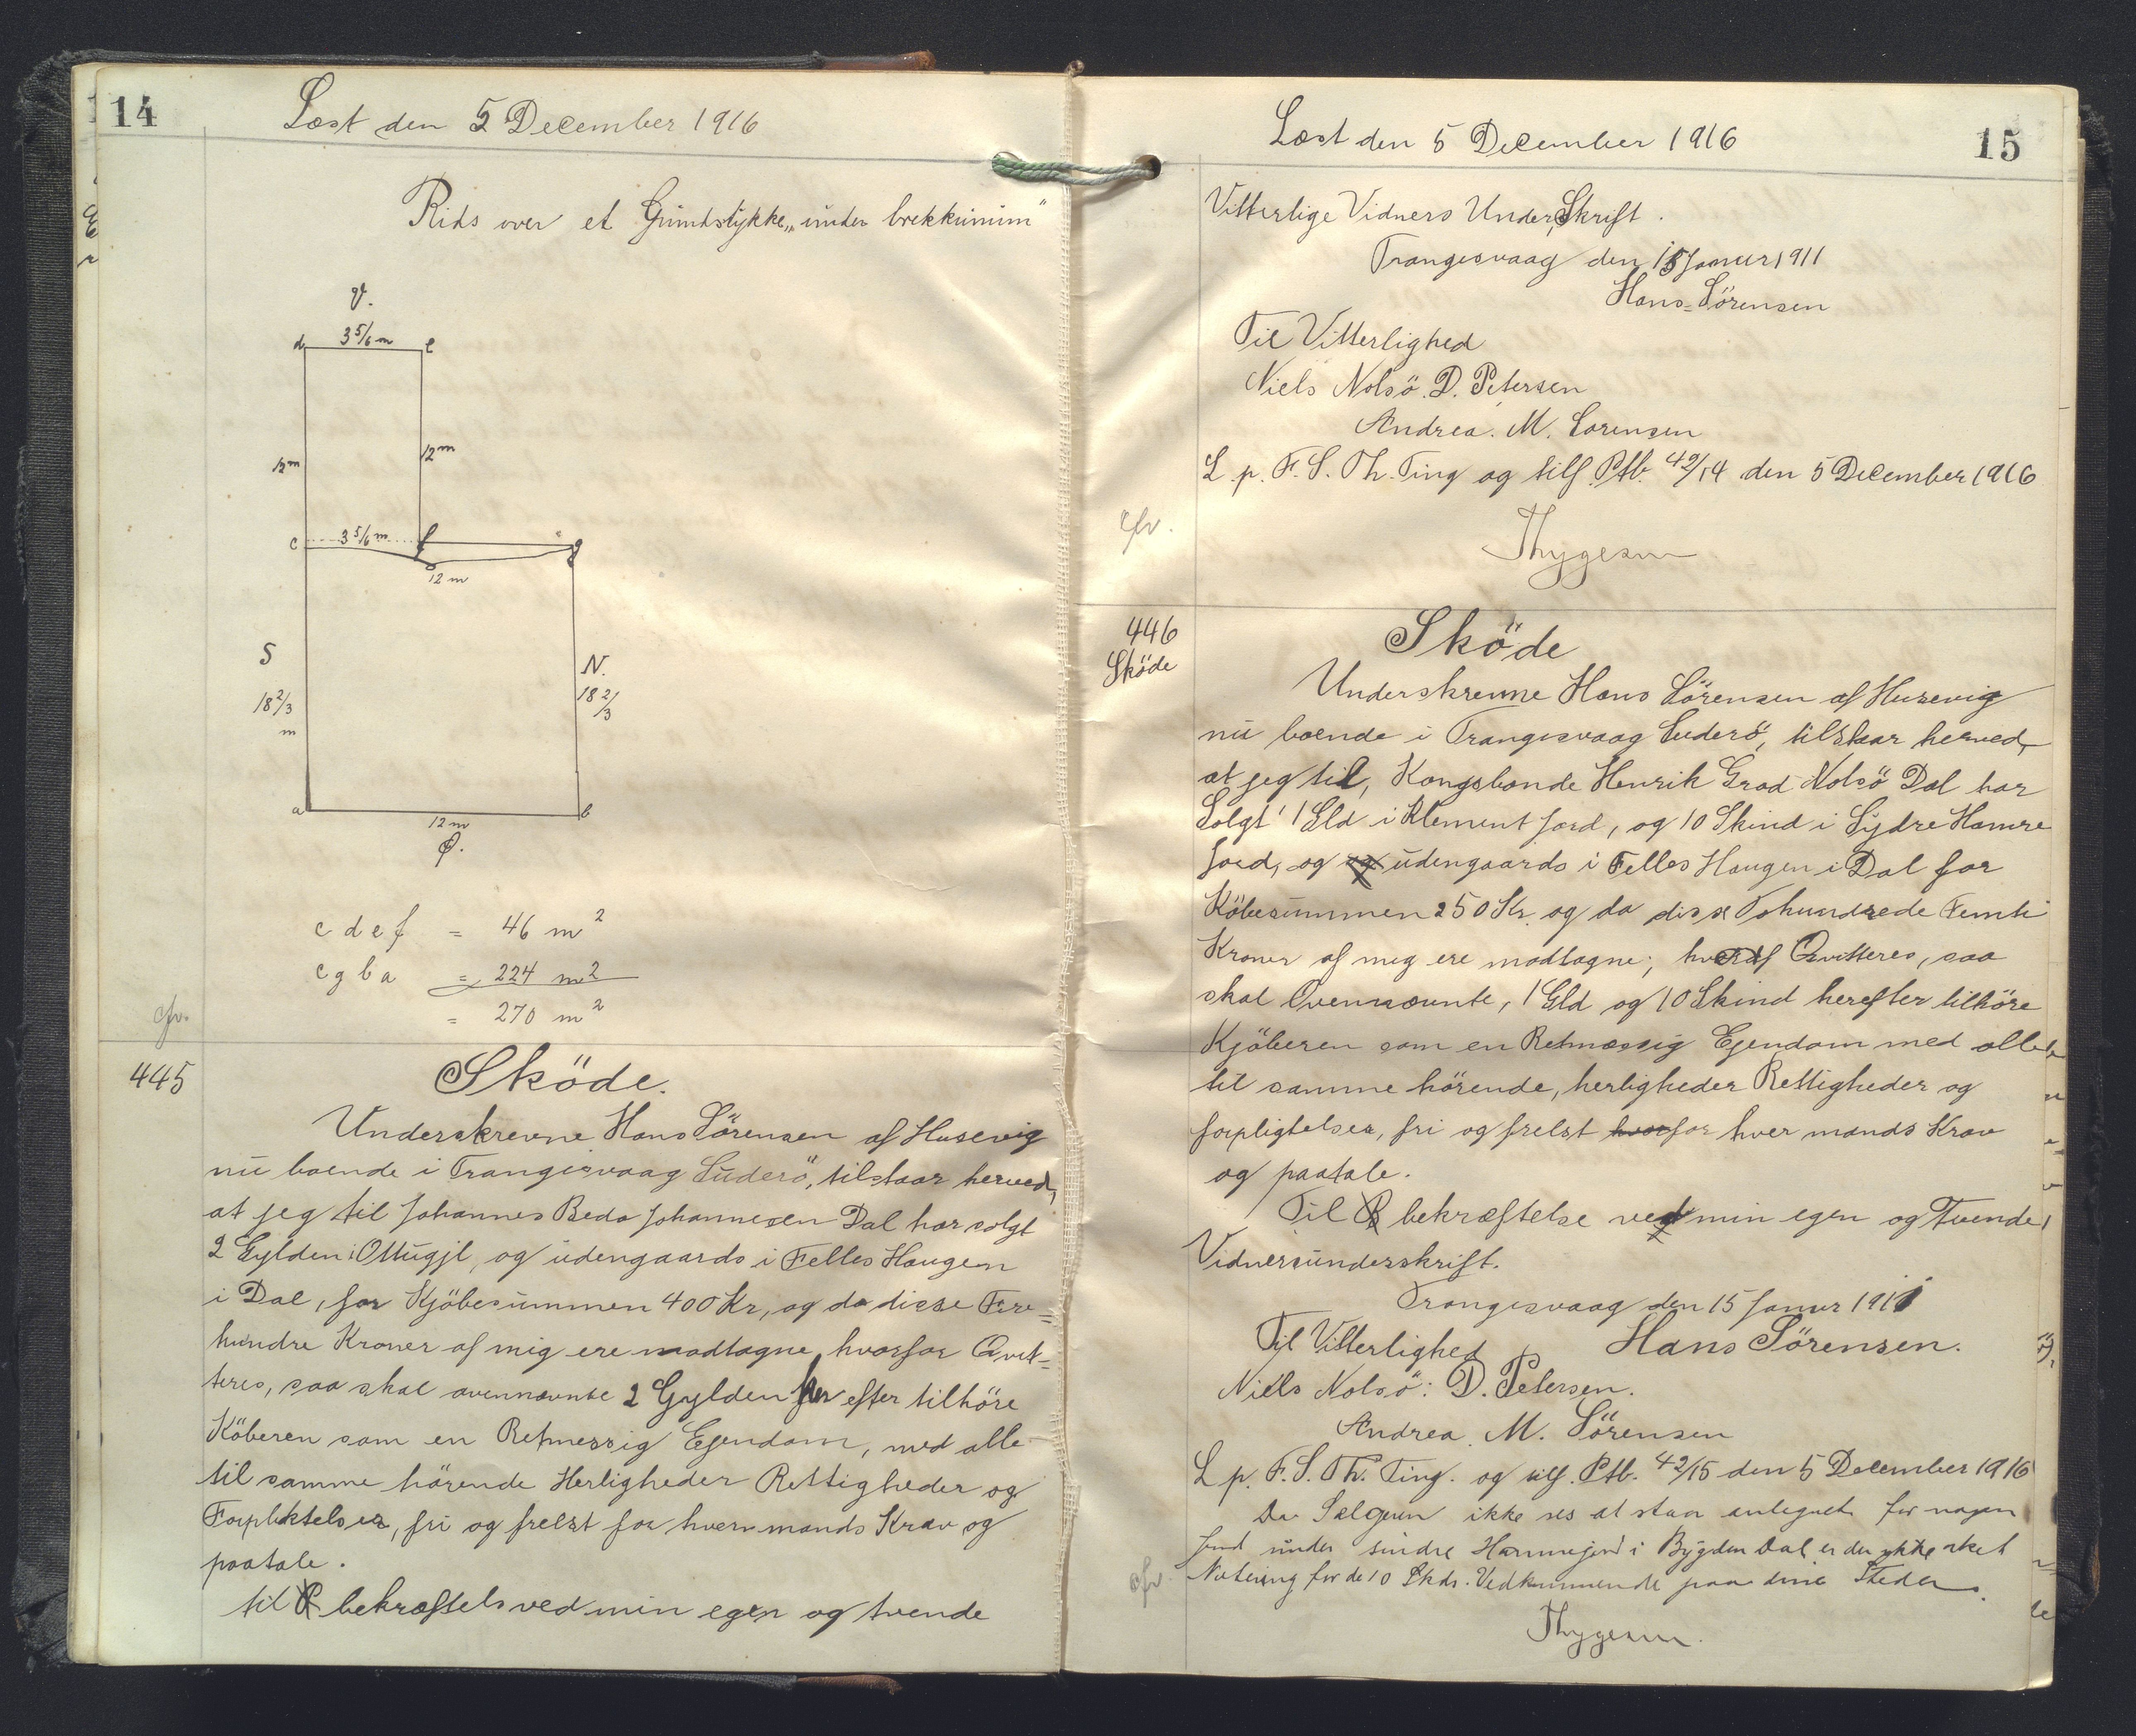 14
Læst den 5 December 1916
Rids over et Grundstykke „under brekkunum"
V.
d 3 5/6 m e
12 m
12 m
c 3 5/6 m f g
12 m
S
N.
18 2/3 m
18 2/3
a 12 m b
Ø.
c d e f = 46 m²
c g b a = 224 m²
= 270 m²
cfr.
445
Sköde.
Underskrevne Hans Sörensen af Husevig
nu boende i Trangisvaag Suderö, tilstaar herved,
at jeg til Johannes Beda Johannesen Dal har solgt
2 Gylden i Ottugjl, og udengaards i Felles Haugen
i Dal, for Kjöbesummen 400 Kr, og da disse Fire=
hundre Kroner af mig ere modtagne, hvorfor Qvit=
teres, saa skal ovennævnte 2 Gylden her efter tilhöre
Köberen som en Retmessig Ejendom, med alle
til samme hörende Herligheder Rettigheder og
Forpliktelser, fri og frelst for hvers mands Krav og
paatale.
til bekræftels ved min egen og tvende
Læst den 5 December 1916
15
Vitterlige Vidners Under,Skrift.
Trangesvaag den 15 Januar 1911
Hans=Sörensen
Til Vitterlighed
Niels Nolsö. D. Petersen
Andrea. M. Sorensen
L. p. F. S. Th. Ting og tilf. Ptb. 42/14 den 5 December 1916
cfr.
Thygesen
446
Sköde
Sköde
Underskrevne Hans Sörensen af Husevig
nu boende i Trangesvaag Suderö, tilstaar herved,
at jeg til, Kongsbonde Henrik Grad Nolsö Dal har
Solgt 1 Gld i Klement jord, og 10 Skind i Sydre Hamre
jord, og og udengaards i Felles Haugen i Dal for
Köbesummen 250 Kr. og da disse Tohundrede Femti
Kroner af meg ere modtagne; hvoraf Qvitteres, saa
skal Ovennævnte, 1 Gld og 10 Skind herefter tilhöre
Kjöberen som en Retmæssig Ejendom med alle
til samme hörende, herligheder Rettigheder og
forpligtelser, fri og frelst hvorfor hver mands Krav
og paatale.
Til bekræftelse ved min egen og Tvende
Vidnersunderskrift.
Trangesvaag den 15 Janur 1911
Til Vitterlighed Hans Sörensen.
Niels Nolsö: D. Petersen.
Andrea. M. Sörensen
L. p. F. S. Th. Ting. og tilf. Ptb. 42/15 den 5 December 1916
Da Sælgeren ikke ses at staa antegnet for nogen
Jord under sindre Hammejord i Bygden Dal er der ikke sket
cfr.
Notering for de 10 Skd. Vedkommende paa dine Steder.
Thygesen.